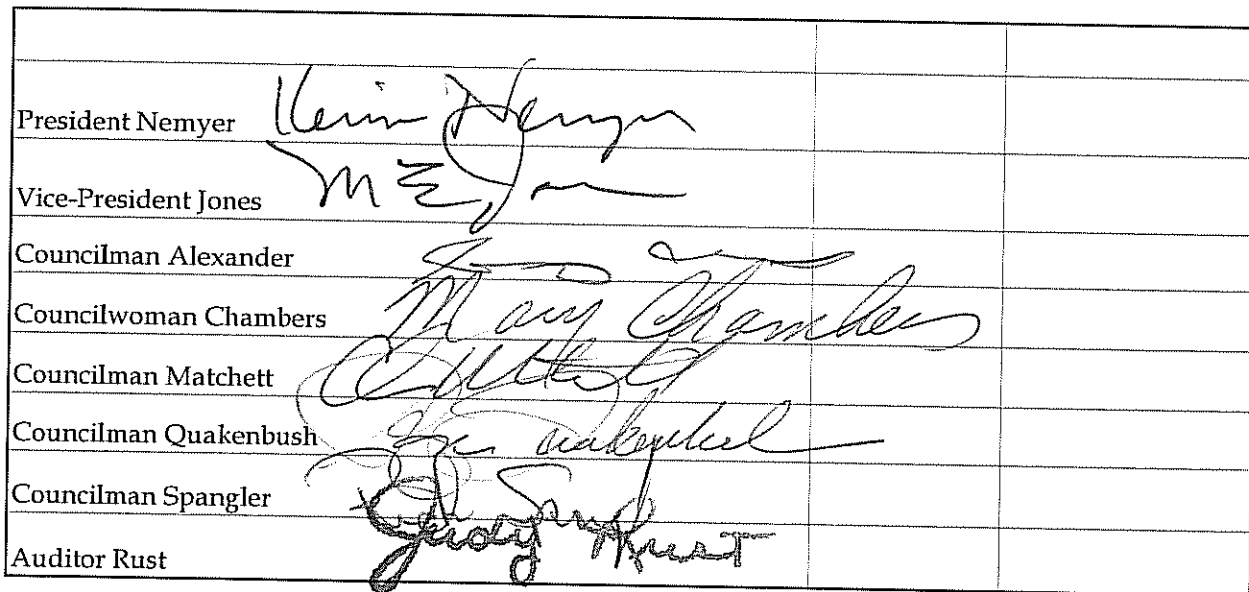 President Nemyer Kevin Nemyer
Vice-President Jones M E Jones
Councilman Alexander
Councilwoman Chambers Mary Chambers
Councilman Matchett
Councilman Quakenbush
Councilman Spangler
Auditor Rust Judy Rust